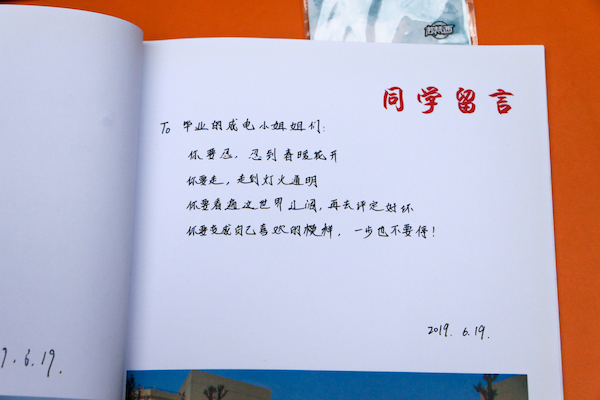 同学留言
To 毕业的成电小姐姐们:
你要忍，忍到春暖花开
你要走，走到灯火通明
你要看遍这世界辽阔，再去评定好坏
你要变成自己喜欢的模样，一步也不要停！
2019. 6.19.
9.6.19.